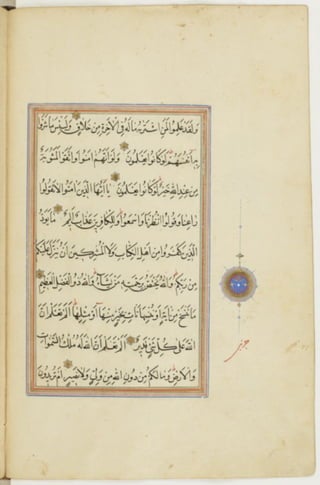 ولقد علموا لمن اشتراه ما له في الآخرة من خلاق ولبئس ما شروا
به أنفسهم لو كانوا يعلمون ولو أنهم آمنوا واتقوا لمثوبة
من عند الله خير لو كانوا يعلمون يا أيها الذين آمنوا لا تقولوا
راعنا وقولوا انظرنا واسمعوا وللكافرين عذاب أليم ما يود
الذين كفروا من أهل الكتاب ولا المشركين أن ينزل عليكم
من ربكم والله يختص برحمته من يشاء والله ذو الفضل العظيم
ما ننسخ من آية أو ننسها نأت بخير منها أو مثلها ألم تعلم أن
الله على كل شيء قدير ألم تعلم أن الله له ملك السموات
والأرض وما لكم من دون الله من ولي ولا نصير أم تريدون